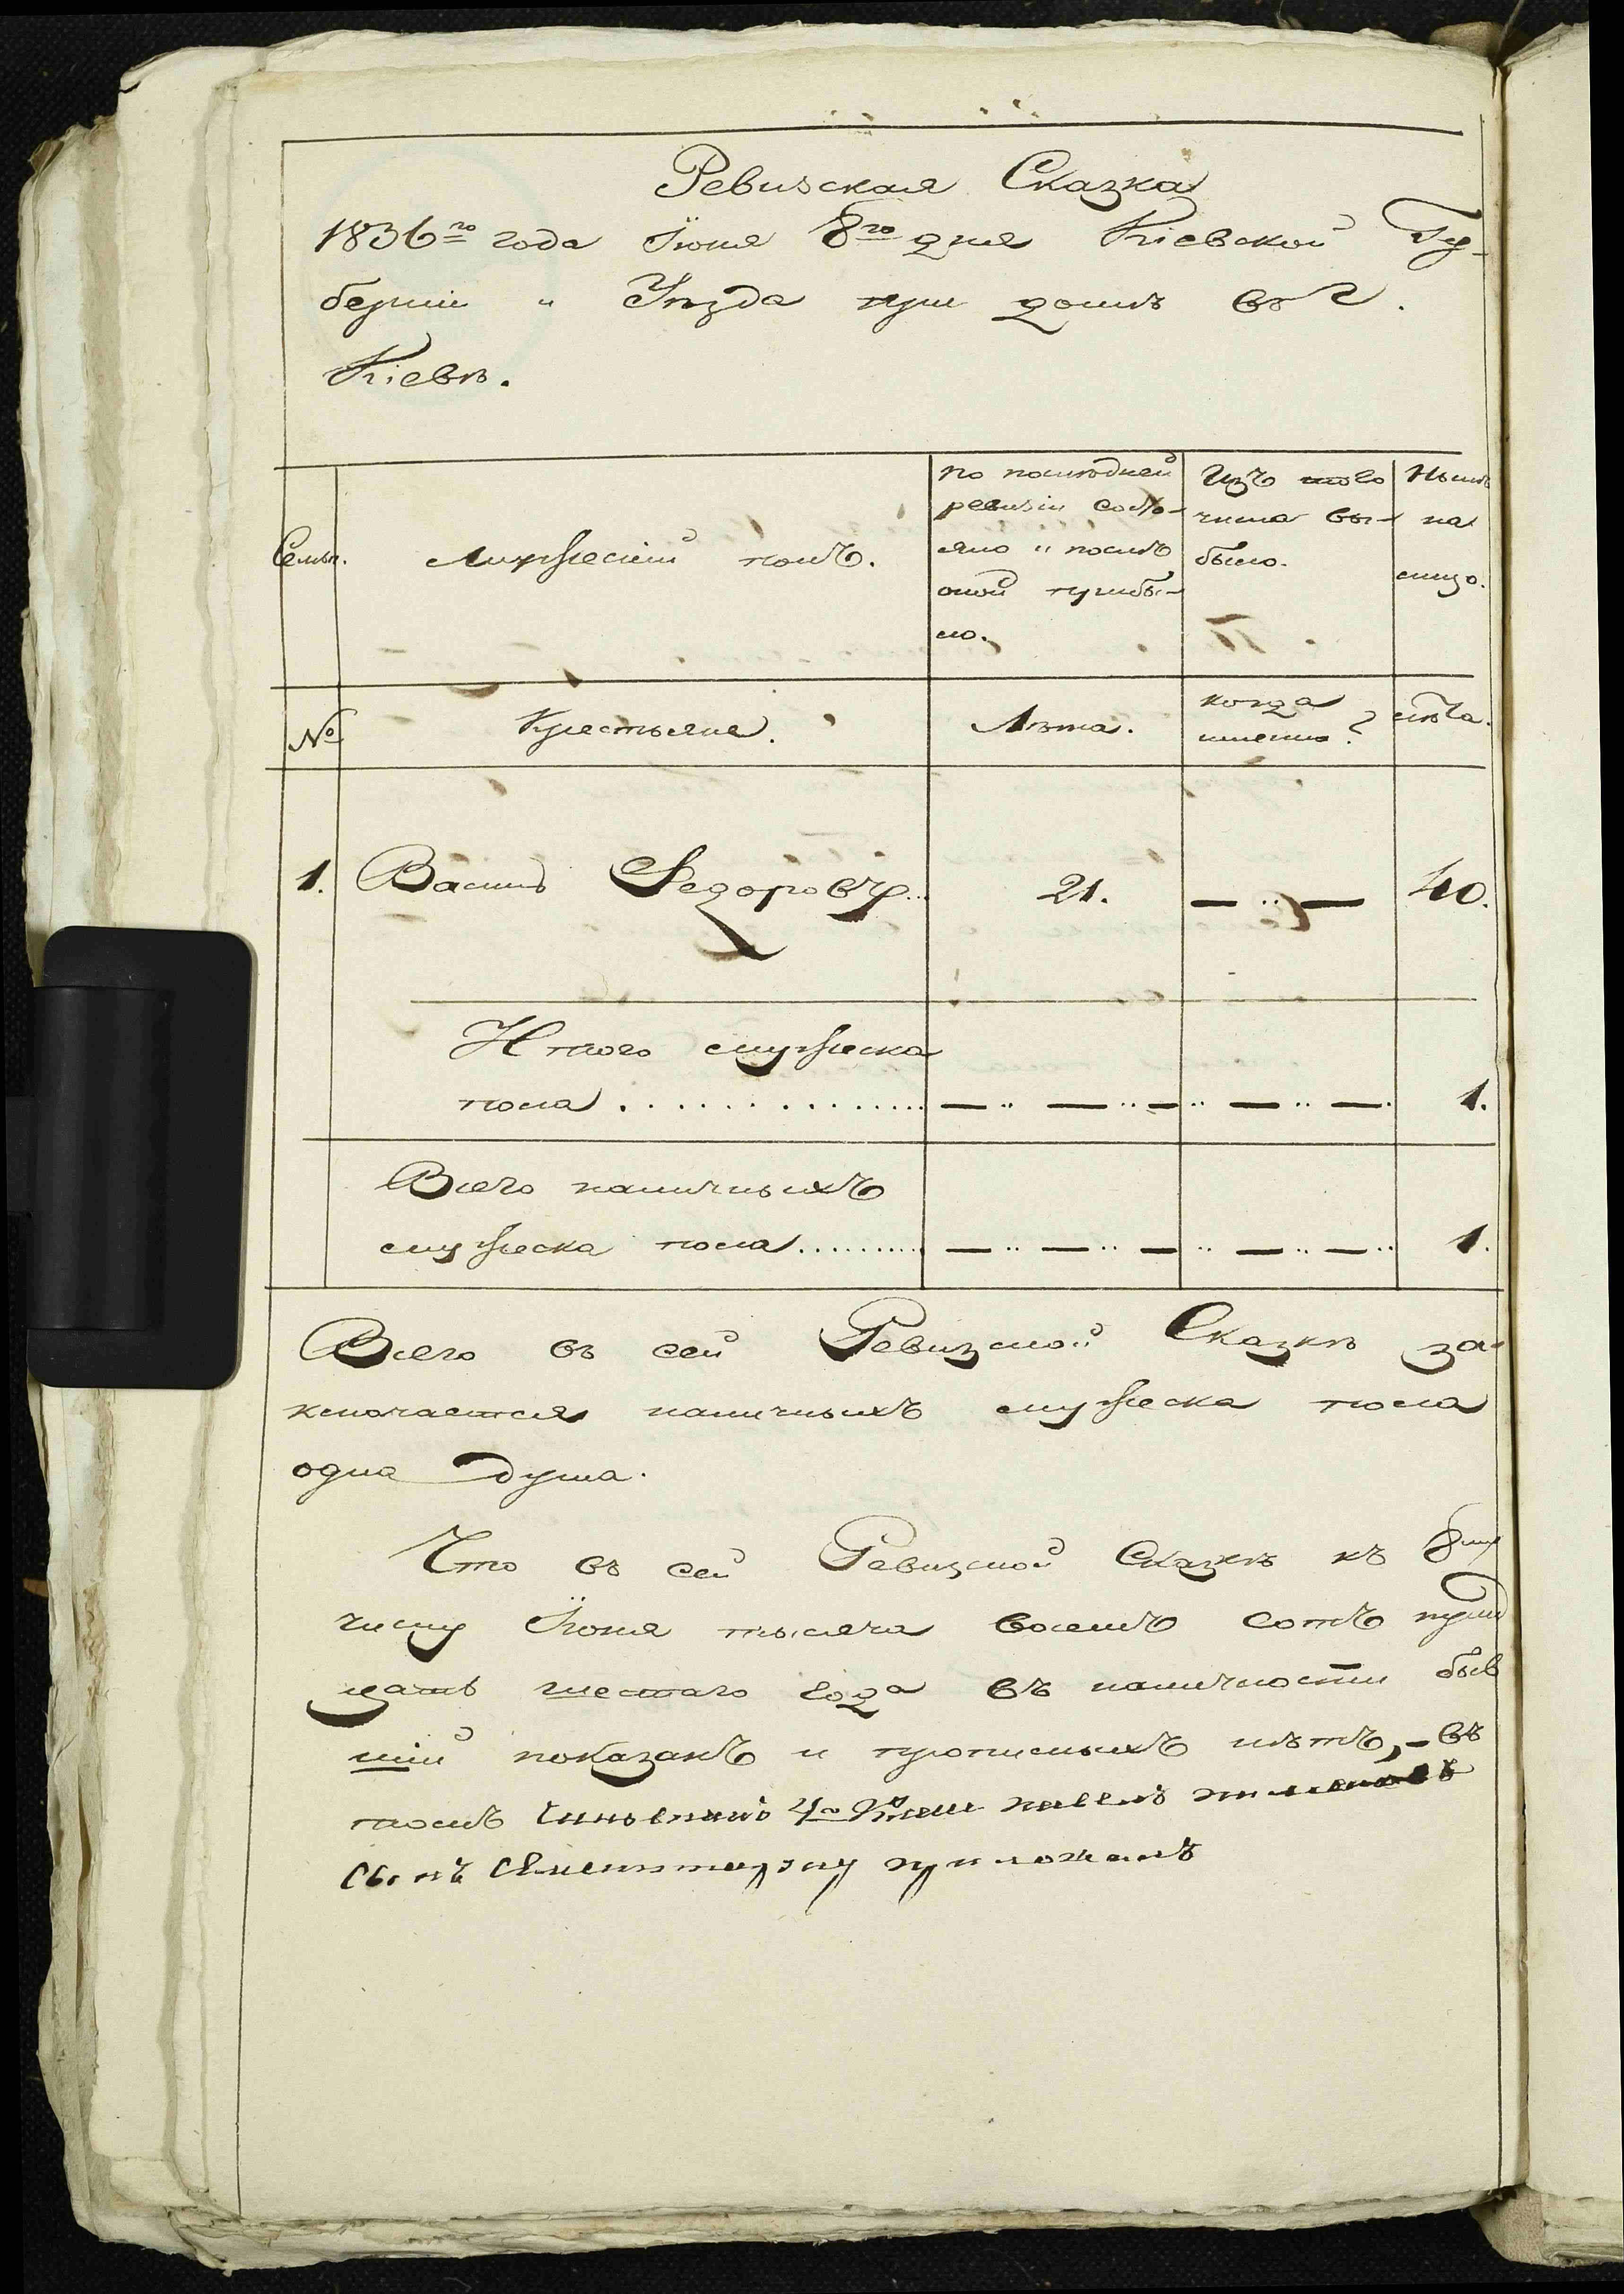 Ревизская Сказка
1836го года Іюня 8го дня Кіевской Гу-
берніи " Уѣзда при домѣ въ г.
Кіевѣ.
Семьи. Мужескій полъ. По послѣдней ревизіи состо- яло и послѣ оной прибы- ло. Изъ того числа вы- было. Нынѣ на лицо.
№ Крестьяне. Лѣта. когда именно? лѣта.
1. Василь Федоровъ... 21. — .. — 40.
Итого мужеска
пола .............. 1.
Всего наличныхъ
мужеска пола ......... 1.
Всего въ сей Ревизской Сказкѣ за-
ключается наличныхъ мужеска пола
одна душа.
Что въ сей Ревизской Сказкѣ къ 8му
числу Іюня тысяча восемь сотъ трид
цать шестаго года въ наличности быв
шій показанъ и прописныхъ нѣтъ, - въ
томъ
Сынъ руку приложилъ